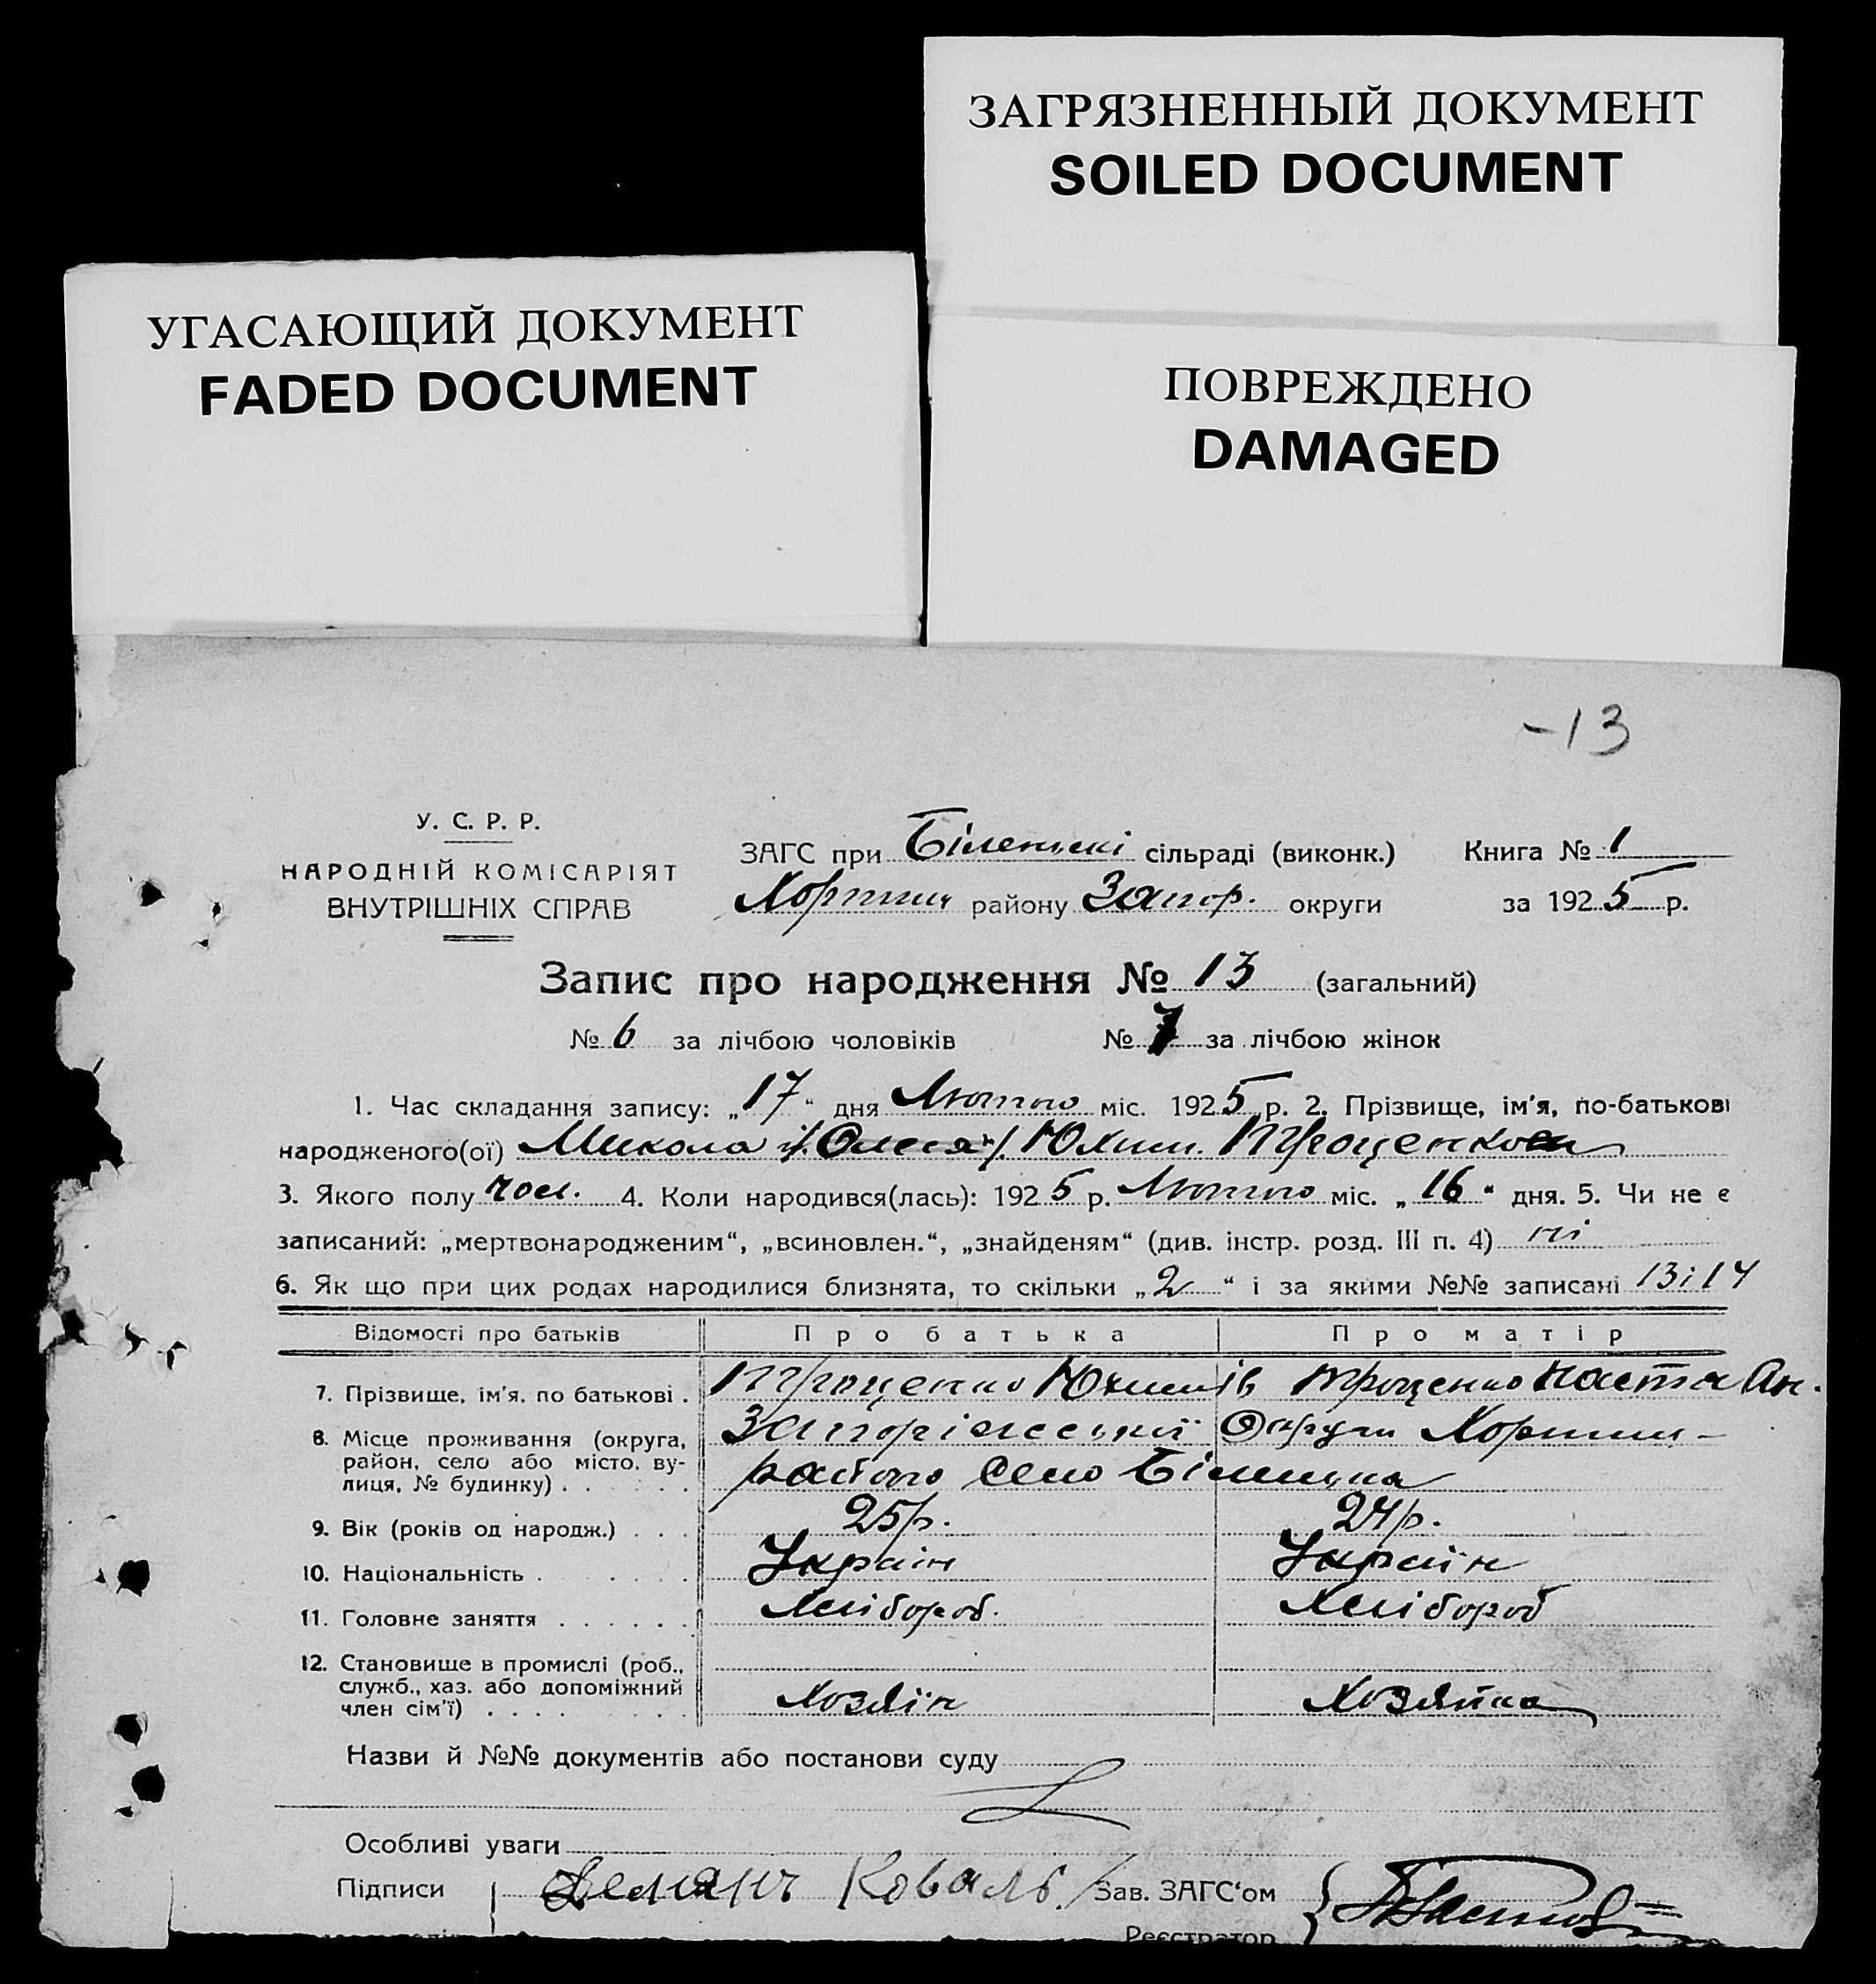 ЗАГРЯЗНЕННЫЙ ДОКУМЕНТ
SOILED DOCUMENT
УГАСАЮЩИЙ ДОКУМЕНТ
FADED DOCUMENT
ПОВРЕЖДЕНО
DAMAGED
-13
У. С. Р. Р.
НАРОДНІЙ КОМІСАРІЯТ
ВНУТРІШНІХ СПРАВ
ЗАГС при Біленьскі сільраді (виконк.) Книга № 1
Хортиц району Запор. округи за 1925 р.
Запис про народження № 13 (загальний)
№ 6 за лічбою чоловіків № 7 за лічбою жінок
1. Час складання запису: „17“ дня Лютого міс. 1925 р. 2. Прізвище, ім'я, по-батькові
народженого(ої) Микола Юхим. Троценко
3. Якого полу чол. 4. Коли народився(лась): 1925 р. Лютого міс. „16“ дня. 5. Чи не є
записаний: „мертвонародженим“, „всиновлен.“, „знайденям“ (див. інстр. розд. III п. 4) ні
6. Як що при цих родах народилися близнята, то скільки „2“ і за якими №№ записані 13 і 14
Відомості про батьків Про батька Про матір
7. Прізвище, ім'я, по батькові . Троценко Юхим Ів Троценко Настя Ан.
8. Місце проживання (округа, район, село або місто, вулиця, № будинку) . Запоріжської Округи Хортиц-
района село Біленька
9. Вік (років од народж.) . . . 25 р. 24 р.
10. Національність . Україн Україн
11. Головне заняття . . . . . . Хлібороб. Хлібороб
12. Становище в промислі (роб.,
служб., хаз. або допоміжний
член сім'ї) . . . . Хозяїн Хозяйка
Назви й №№ документів або постанови суду
Особливі уваги
Підписи Демянъ Коваль Зав. ЗАГС'ом
Реєстратор